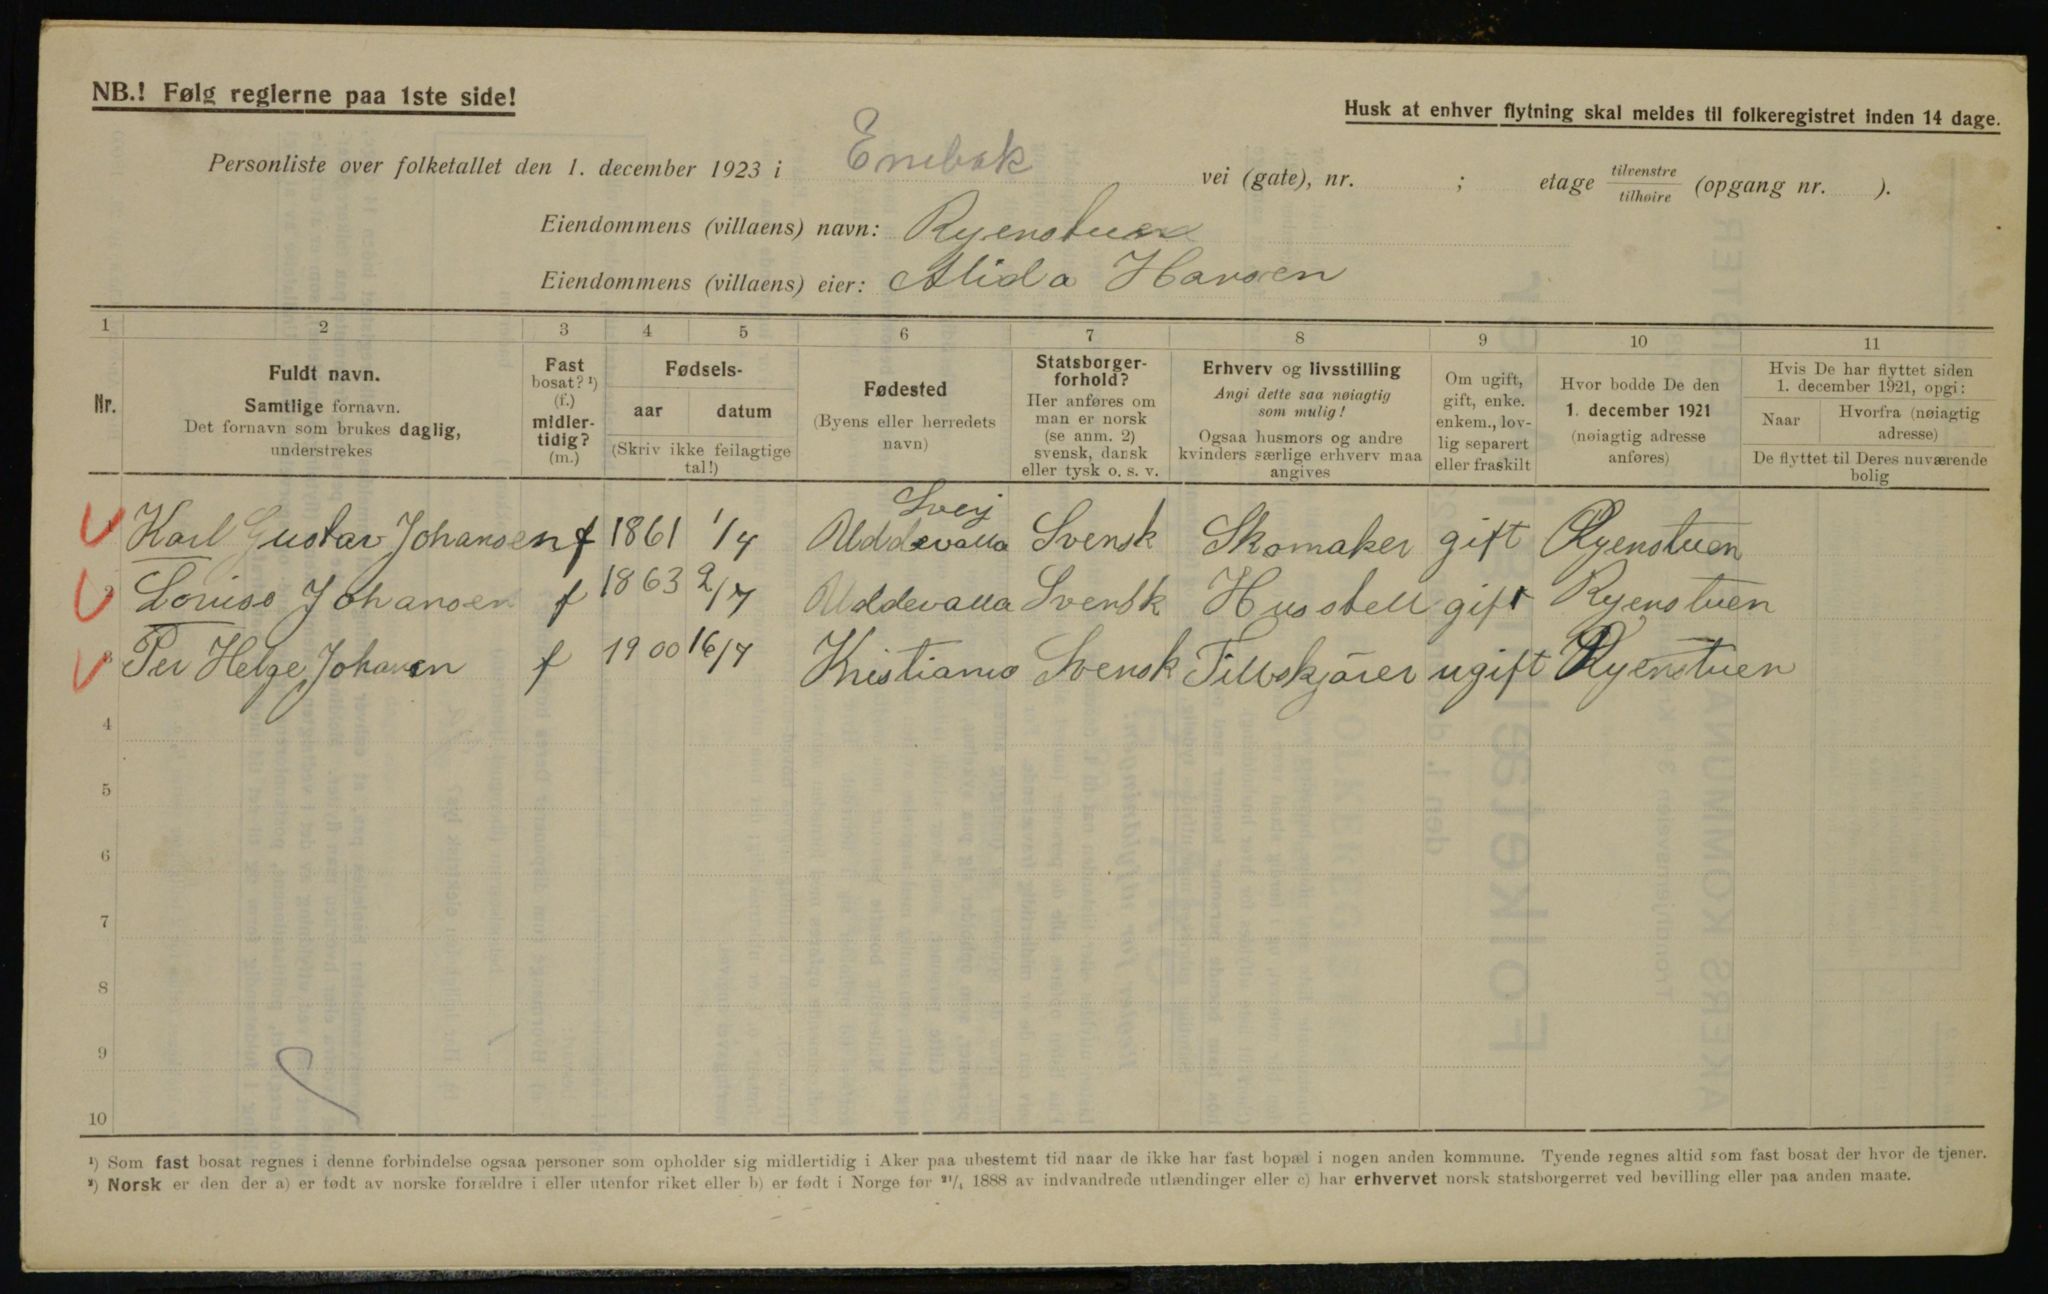 NB.! Følg reglerne paa 1ste side!
Husk at enhver flytning skal meldes til folkeregistret inden 14 dage.
Personliste over folketallet den 1. december 1923 i Enebak vei (gate), nr. ; etage tilvenstre/tilhøire (opgang nr. ).
Eiendommens (villaens) navn: Ryenstuen
Eiendommens (villaens) eier: Alida Hansen
1 2 3 4 5 6 7 8 9 10 11
Nr.
Fuldt navn.
Samtlige fornavn.
Det fornavn som brukes daglig,
understrekes
Fast
bosat? ¹)
(f.)
midler-
tidig?
(m.)
Fødsels-
aar datum
(Skriv ikke feilagtige
tal!)
Fødested
(Byens eller herredets
navn)
Statsborger-
forhold?
Her anføres om
man er norsk
(se anm. 2)
svensk, dansk
eller tysk o. s. v.
Erhverv og livsstilling
Angi dette saa nøiagtig
som mulig!
Ogsaa husmors og andre
kvinders særlige erhverv maa
angives
Om ugift,
gift, enke.
enkem., lov-
lig separert
eller fraskilt
Hvor bodde De den
1. december 1921
(nøiagtig adresse
anføres)
Hvis De har flyttet siden
1. december 1921, opgi:
Naar Hvorfra (nøiagtig
adresse)
De flyttet til Deres nuværende
bolig
Sverj
1 Karl Gustav Johansen f 1861 1/4 Uddevalla Svensk Skomaker gift Ryenstuen
2 Louise Johansen f 1863 2/7 Uddevalla Svensk Husstell gift Ryenstuen
3 Per Helge Johansen f 1900 16/7 Kristiania Svensk Tillskjärer ugift Ryenstuen
4
5
6
7
8
9
10
¹) Som fast bosat regnes i denne forbindelse ogsaa personer som opholder sig midlertidig i Aker paa ubestemt tid naar de ikke har fast bopæl i nogen anden kommune. Tyende regnes altid som fast bosat der hvor de tjener.
²) Norsk er den der a) er født av norske forældre i eller utenfor riket eller b) er født i Norge før ²¹/₄ 1888 av indvandrede utlændinger eller c) har erhvervet norsk statsborgerret ved bevilling eller paa anden maate.